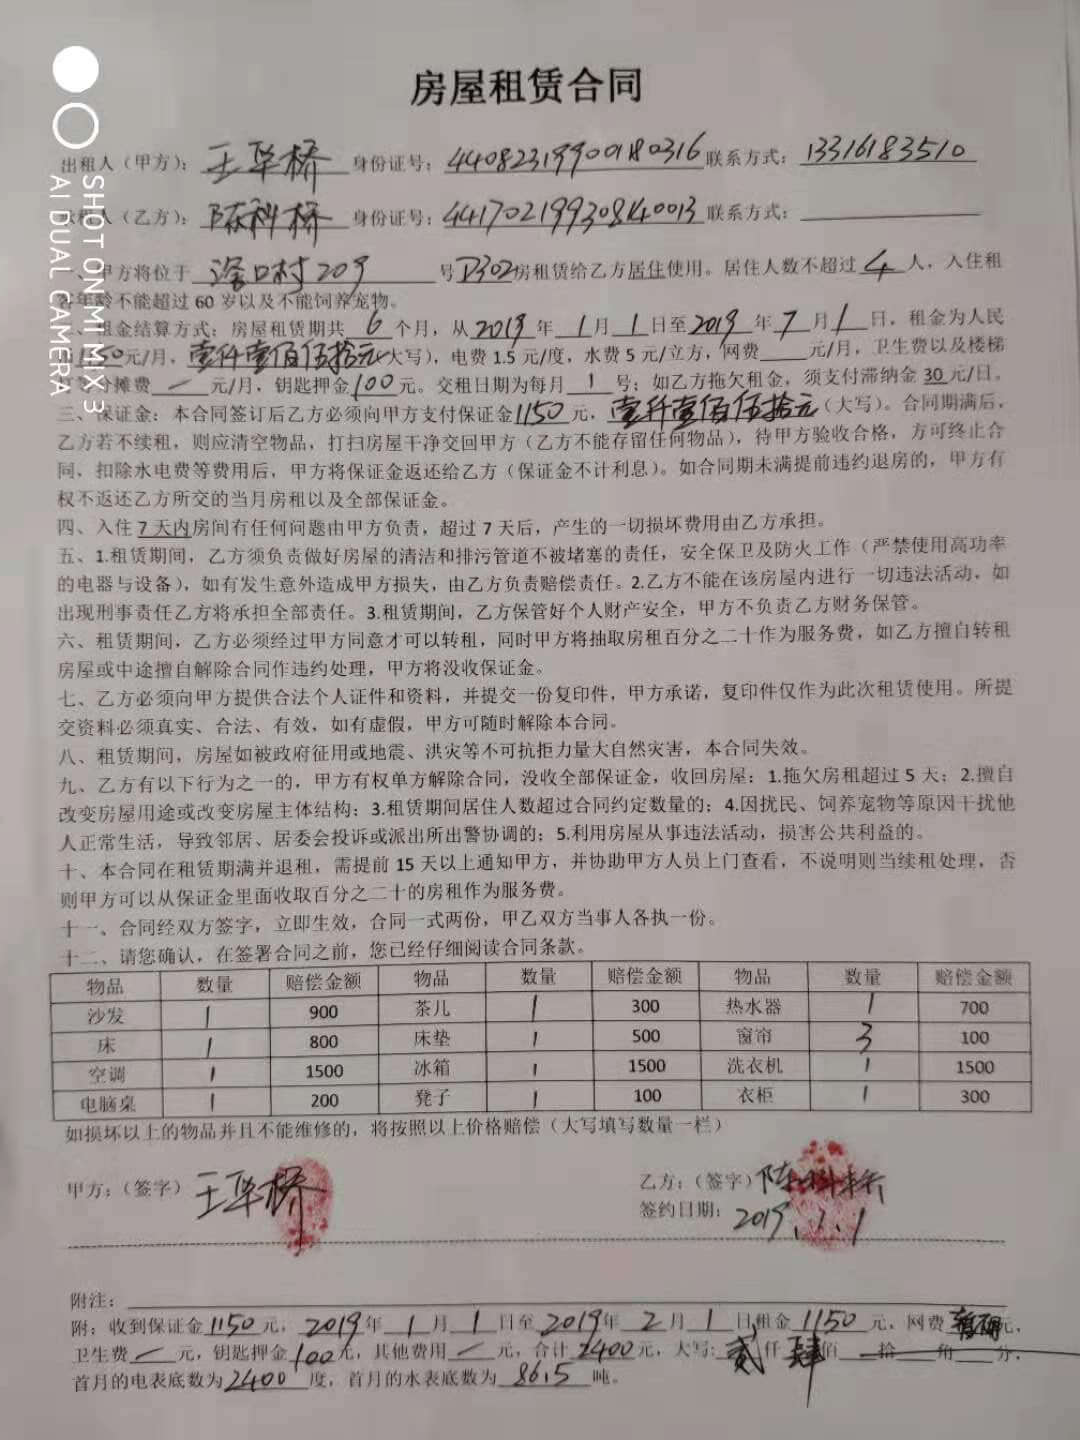 房屋租赁合同
出租人（甲方）：王华桥 身份证号：440823199001180316 联系方式：13316183510
租人（乙方）：陈科桥 身份证号：441702199308140013 联系方式：
一、甲方将位于 滘口村209 号 D302 房租赁给乙方居住使用。居住人数不超过 4 人，入住租
客年龄不能超过 60 岁以及不能饲养宠物。
二、租金结算方式：房屋租赁期共 6 个月，从 2019 年 1 月 1 日至 2019 年 7 月 1 日，租金为人民
1150 元/月，壹仟壹佰伍拾元（大写），电费 1.5 元/度，水费 5 元/立方，网费 元/月，卫生费以及楼梯
分摊费 — 元/月，钥匙押金 100 元。交租日期为每月 1 号；如乙方拖欠租金，须支付滞纳金 30 元/日。
三、保证金：本合同签订后乙方必须向甲方支付保证金 1150 元，壹仟壹佰伍拾元（大写）。合同期满后，
乙方若不续租，则应清空物品，打扫房屋干净交回甲方（乙方不能存留任何物品），待甲方验收合格，方可终止合
同、扣除水电费等费用后，甲方将保证金返还给乙方（保证金不计利息）。如合同期未满提前违约退房的，甲方有
权不返还乙方所交的当月房租以及全部保证金。
四、入住 7 天内房间有任何问题由甲方负责，超过 7 天后，产生的一切损坏费用由乙方承担。
五、1.租赁期间，乙方须负责做好房屋的清洁和排污管道不被堵塞的责任，安全保卫及防火工作（严禁使用高功率
的电器与设备），如有发生意外造成甲方损失，由乙方负责赔偿责任。2.乙方不能在该房屋内进行一切违法活动，如
出现刑事责任乙方将承担全部责任。3.租赁期间，乙方保管好个人财产安全，甲方不负责乙方财务保管。
六、租赁期间，乙方必须经过甲方同意才可以转租，同时甲方将抽取房租百分之二十作为服务费，如乙方擅自转租
房屋或中途擅自解除合同作违约处理，甲方将没收保证金。
七、乙方必须向甲方提供合法个人证件和资料，并提交一份复印件，甲方承诺，复印件仅作为此次租赁使用。所提
交资料必须真实、合法、有效，如有虚假，甲方可随时解除本合同。
八、租赁期间，房屋如被政府征用或地震、洪灾等不可抗拒力量大自然灾害，本合同失效。
九、乙方有以下行为之一的，甲方有权单方解除合同，没收全部保证金，收回房屋：1.拖欠房租超过 5 天；2.擅自
改变房屋用途或改变房屋主体结构；3.租赁期间居住人数超过合同约定数量的；4.因扰民、饲养宠物等原因干扰他
人正常生活，导致邻居、居委会投诉或派出所出警协调的；5.利用房屋从事违法活动，损害公共利益的。
十、本合同在租赁期满并退租，需提前 15 天以上通知甲方，并协助甲方人员上门查看，不说明则当续租处理，否
则甲方可以从保证金里面收取百分之二十的房租作为服务费。
十一、合同经双方签字，立即生效，合同一式两份，甲乙双方当事人各执一份。
十二、请您确认，在签署合同之前，您已经仔细阅读合同条款。
物品 数量 赔偿金额 物品 数量 赔偿金额 物品 数量 赔偿金额
沙发 1 900 茶几 1 300 热水器 1 700
床 1 800 床垫 1 500 窗帘 3 100
空调 1 1500 冰箱 1 1500 洗衣机 1 1500
电脑桌 1 200 凳子 1 100 衣柜 1 300
如损坏以上的物品并且不能维修的，将按照以上价格赔偿（大写填写数量一栏）
甲方：（签字）王华桥 乙方：（签字）陈科桥
签约日期：2019.1.1
附注：
附：收到保证金 1150 元，2019 年 1 月 1 日至 2019 年 2 月 1 日租金 1150 元，网费 元，
卫生费 — 元，钥匙押金 100 元，其他费用 — 元，合计 2400 元，大写：贰 仟 肆 佰 拾 角 分，
首月的电表底数为 2400 度，首月的水表底数为 86.5 吨。
SHOT ON MI MIX 3
AI DUAL CAMERA